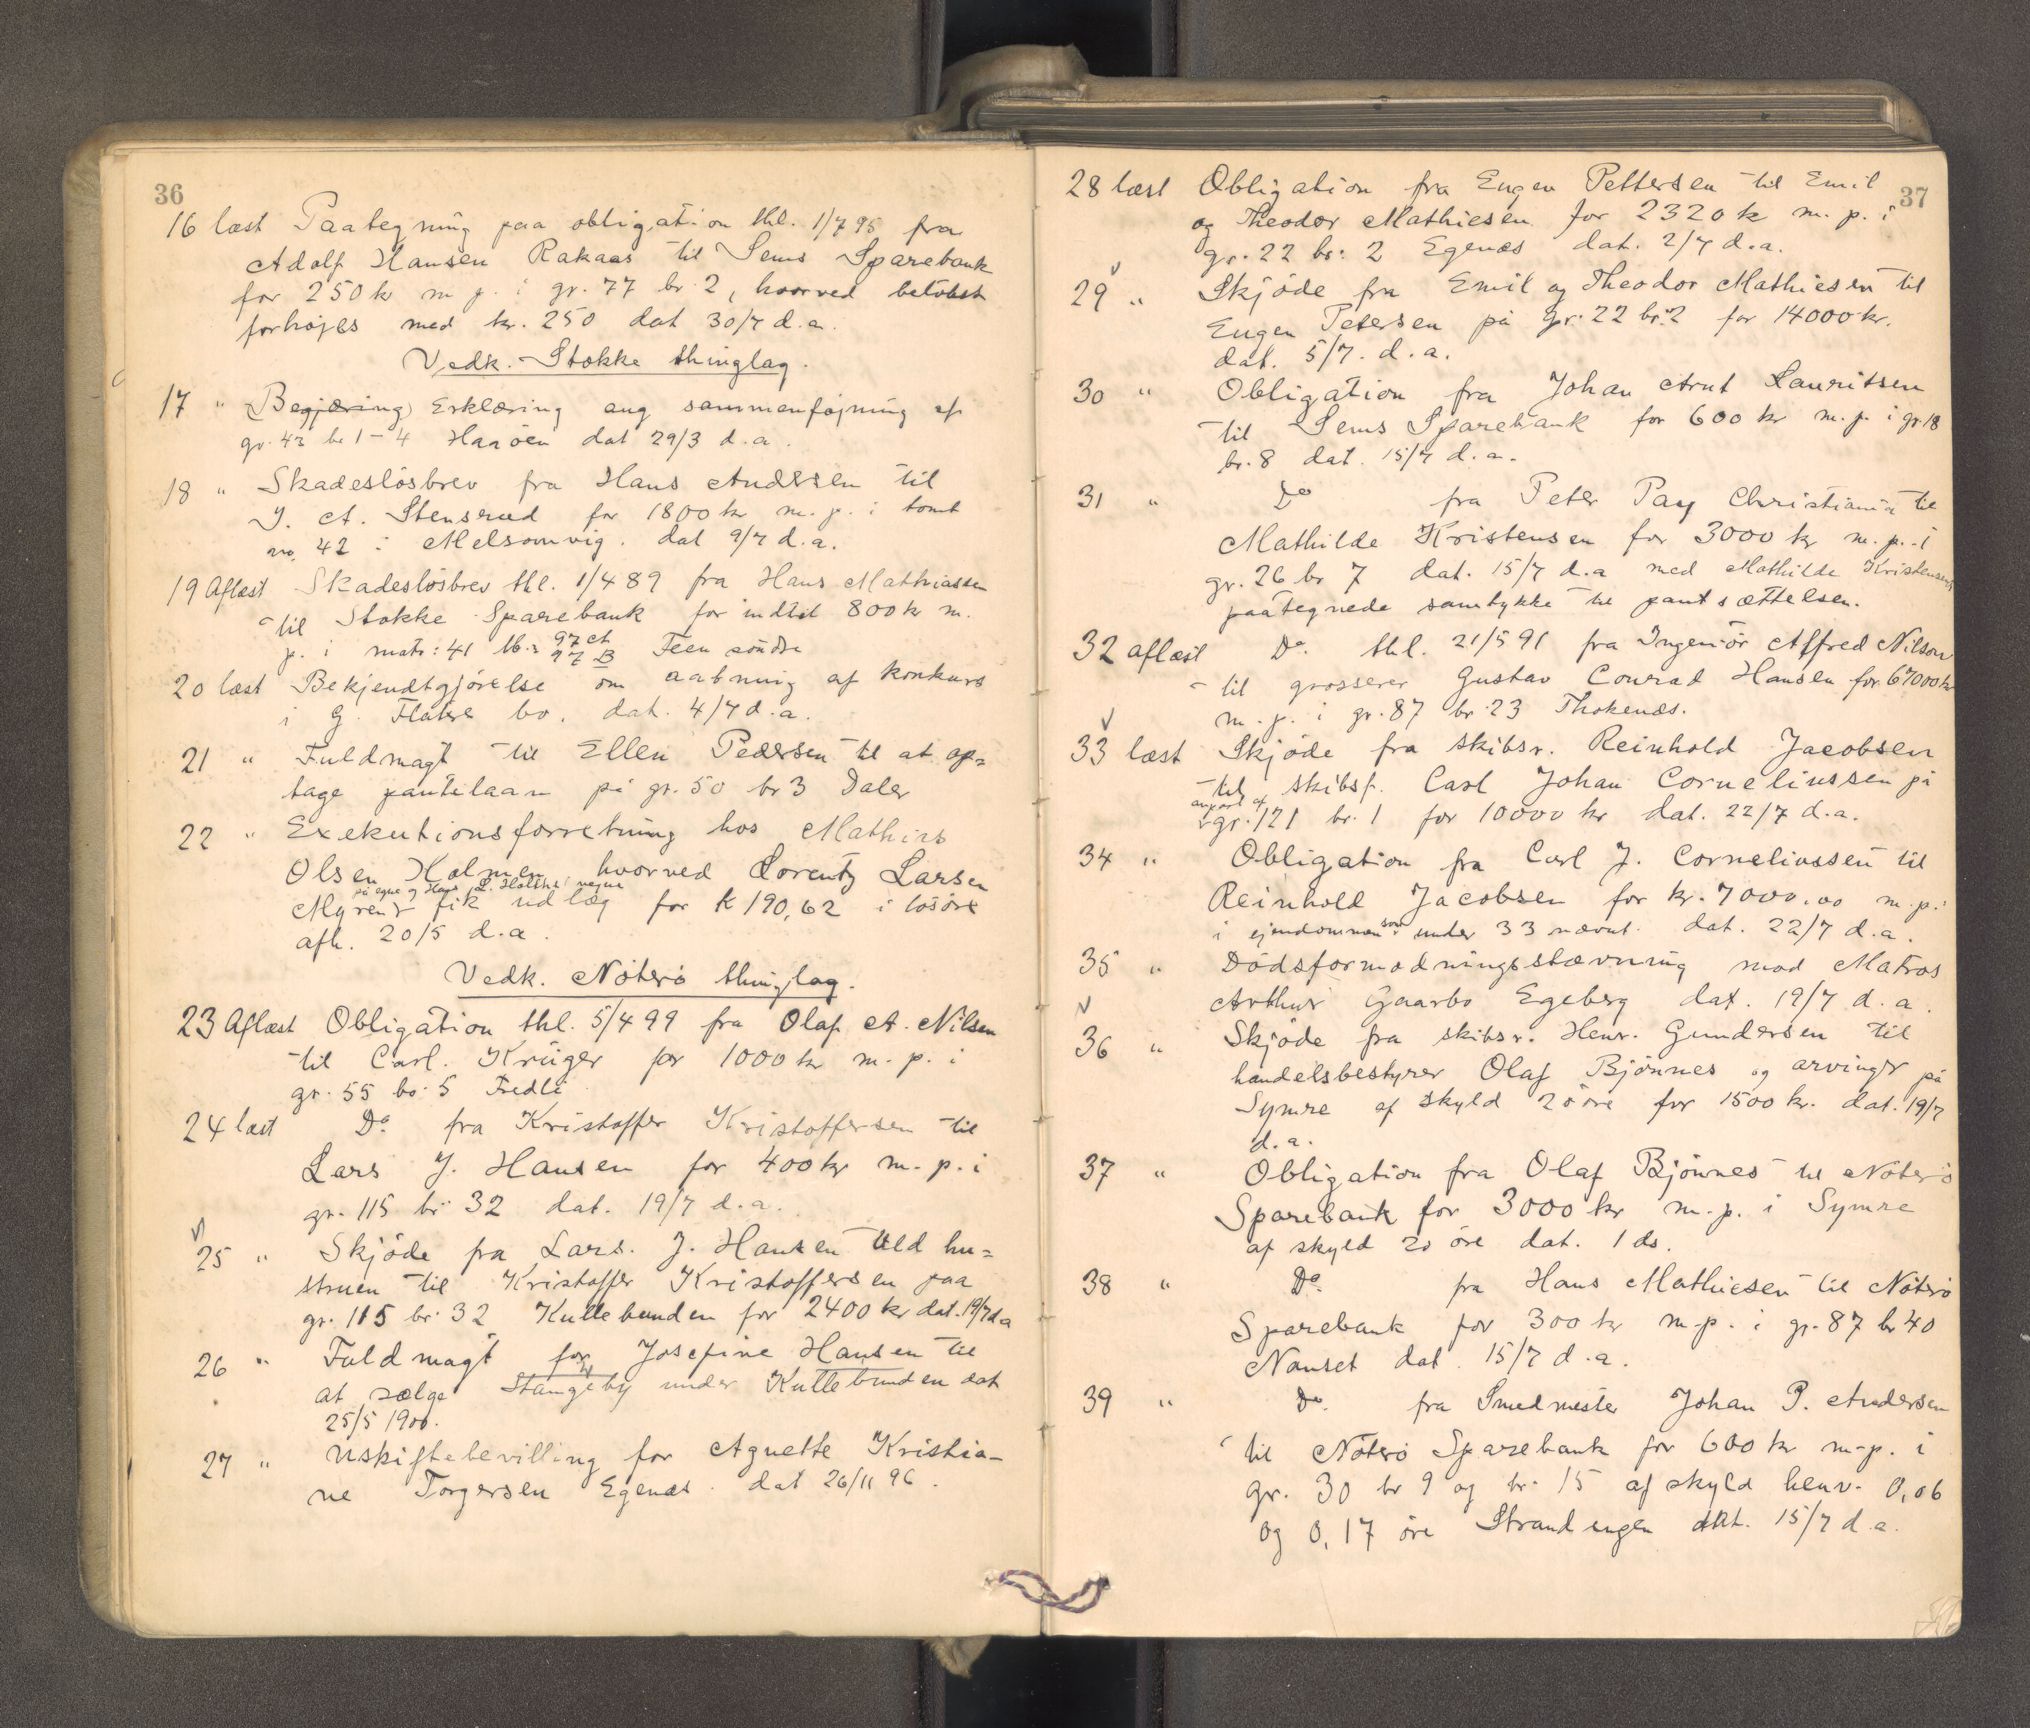 36
16 læst Paategning paa obligation thl. 1/7 95 fra
Adolf Hansen Rakaas til Sems Sparebank
for 250 kr m. p. i gr. 77 br 2, hvorved beløbet
forhøjes med kr. 250 dat 30/7 d. a.
Vedk. Stokke thinglag.
17 " Begjæring) Erklæring ang sammenføjning af
gr. 43 br 1-4 Haaöen dat 29/3 d. a.
18 " Skadesløsbrev fra Hans Andersen til
J. A. Stensrud for 1800 kr m. p. i tomt
no 42 i Melsomvig. dat 9/7 d. a.
19 Aflæst Skadesløsbrev thl. 1/4 89 fra Hans Mathiassen
til Stokke Sparebank for indtil 800 kr m.
p. i matr: 41 lb: 97 A 97 B Feen söndre
20 læst Bekjendtgjörelse om aabning af konkurs
i G. bo. dat. 4/7 d. a.
21 " Fuldmagt til Ellen Pedersen til at op=
tage pantelaan på gr. 50 br 3 Daler
22 " Exekutionsforretning hos Mathias
Olsen Holmen hvorved Lorentz Larsen
på egne og Hans L. vegne
Myren fik udlæg for k 190,62 i losöre
afh. 20/5 d. a.
Vedk. Nöterö thinglag.
23 Aflæst Obligation thl. 5/4 99 fra Olaf A. Nilsen
til Carl. Krüger for 1000 kr m. p. i
gr. 55 br: 5 Fredli
24 læst Do. fra Kristoffer Kristoffersen til
Lars J. Hansen for 400 kr m. p. i
gr. 115 br 32 dat. 19/7 d. a.
25 " Skjöde fra Lars. J. Hansen Uld hu=
struen til Kristoffer Kristoffersen paa
gr. 115 br: 32 Kullebunden for 2400 kr dat. 19/7 d a
26 " Fuldmagt for Josefine Hansen til
at sælge Stangeby under Kullebunden dat
25/5 1900.
27 " Uskiftebevilling for Agnette Kristia-
ne Torgersen Egenæs. dat 26/11 96.
37
28 læst Obligation fra Eugen Pettersen til Emil
og Theodor Mathiesen for 2320 k m. p. i
gr. 22 br: 2 Egenæs dat. 2/7 d. a.
29 " Skjöde fra Emil og Theodor Mathiesen til
Eugen Petersen på gr. 22 br. 2 for 14000 kr.
dat. 5/7. d. a.
30 " Obligation fra Johan Arnt Lauritsen
til Sems Sparebank for 600 kr m. p. i gr. 18
br. 8 dat. 15/7 d. a.
31 " Do fra Peter Pay Christiania til
Mathilde Kristensen for 3000 kr m. p. i
gr. 26 br 7 dat. 15/7 d. a med Mathilde Kristensens
paategnede samtykke til pantsættelsen.
32 aflæst Do. thl. 21/5 91 fra Ingeniör Alfred Nilson
til grosserer Gustav Conrad Hansen for 67000 kr
m. p. i gr. 87 br 23 Thokenæs.
33 læst Skjöde fra skibsr. Reinhold Jacobsen
til skibsf. Carl Johan Corneliussen på
anpart af
gr. 121 br. 1 for 10000 kr dat. 22/7 d. a.
34 " Obligation fra Carl J. Corneliussen til
Reinhold Jacobsen for kr. 7000.00 m. p.
i ejendommen som under 33 nævnt. dat. 22/7 d. a.
35 " Dödsformodningsstævning mod Matros
Arthur Gaarbo Egeberg dat. 19/7 d. a.
36 " Skjöde fra skibsr. Henr. Gundersen til
handelsbestyrer Olaf Björnnes og arvinger på
Symre af skyld 20 öre for 1500 kr. dat. 19/7
d. a.
37 " Obligation fra Olaf Björnnes til Nöterö
Sparebank for 3000 kr m. p. i Symre
af skyld 20 öre dat. 1 ds.
38 " Do. fra Hans Mathiesen til Nöterö
Sparebank for 300 kr m. p. i gr. 87 br 40
Nanset dat. 15/7 d. a.
39 " Do. fra Smedmester Johan P. Andersen
til Nöterö Sparebank for 600 kr m. p. i
gr. 30 br 9 og br. 15 af skyld henv. 0,06
og 0,17 öre Strandengen dat. 15/7 d. a.